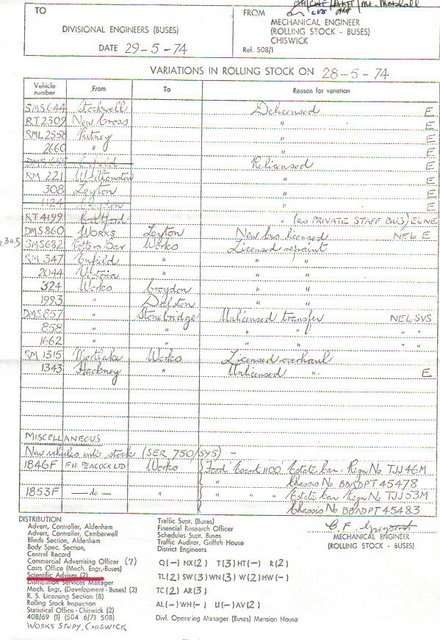 TO
DIVISIONAL ENGINEERS (BUSES)
DATE 29-5-74
FROM
MECHANICAL ENGINEER
(ROLLING STOCK - BUSES)
CHISWICK
Ref. 508/1
VARIATIONS IN ROLLING STOCK ON 28-5-74
Vehicle number From To Reason for variation
SMS644 Stockwell Delicensed E
RT2309 New Cross " E
RML2558 Putney " E
2660 " " E
Relicensed E
RM 221 Walthamstow " E
308 Leyton " E
1124 Leyton " E
RT4199 " (as PRIVATE STAFF BUS)
DMS860 Works Leyton New bus licensed NEW E
SMS682 Potters Bar Works Licensed repaint
RM 347 Enfield " " "
2044 " "
324 Works Croydon "
1993 " Dalston "
DMS857 " Stonebridge Unlicensed transfer NEL SVS
858 " " " " "
1662 " " " " "
RM 1315 Mortlake Works Licensed overhaul
1343 Hackney " Unlicensed " E
MISCELLANEOUS
New vehicles into stock (SER 750/595) -
1846F F.H. PEACOCK LTD Works Ford Escort 1100 Estate Car. Regn No TJJ 46M
Chassis No BBNDPT 45478
1853F - do - " " " Estate Car. Regn No TJJ 53M
Chassis No BBNDPT 45483
DISTRIBUTION
Advert, Controller, Aldenham
Advert, Controller, Camberwell
Blinds Section, Aldenham
Body Spec. Section,
Central Record
Commercial Advertising Officer (7)
Costs Office (Mech. Engr.-Buses)
Scientific Adviser (2)
Distribution Services Manager
Mech. Engr, (Development - Buses) (2)
R. S. Licensing Section (8)
Rolling Stock Inspection
Statistical Office - Chiswick (2)
408/69 (1) 504 6/71 508
WORKS STUDY, CHISWICK
Traffic Supt. (Buses)
Financial Research Officer
Schedules Supt. Buses
Traffic Auditor, Griffith House
District Engineers
Q(-) NX(2) T(3) HT(-) R(2)
TL(2) SW(3) WN(3) W(2) HW(-)
TC(2) AR(3)
AL(-) WH(-) U(-) AV(2)
Divl. Operating Manager (Buses) Mansion House
MECHANICAL ENGINEER
(ROLLING STOCK - BUSES)